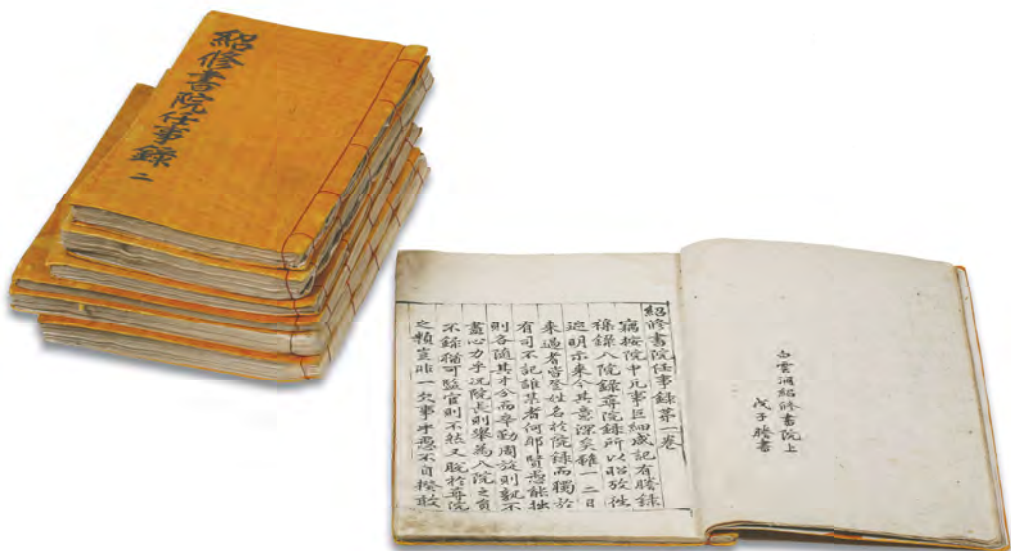 紹修書院任事錄
二
白雲洞紹修書院上
戊子謄書
紹修書院任事錄第一卷
竊按院中凡事巨細咸記有謄錄
襍錄入院錄尋院錄所以昭攷往
迹明示來今其意深矣雖一二日
來過者皆登姓名於院錄而獨於
有司不記誰某者何耶賢愚能拙
則各隨其才分而辛勤周旋則孰不
盡心力乎況院長則擧為入院之員
不錄猶可監官則不然又脫於尋院
之類豈非一欠事乎愚不自揆敢